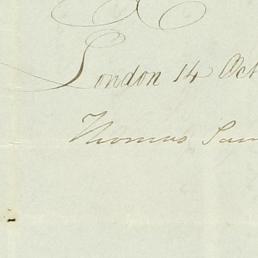 London 14 Oct
Thomas